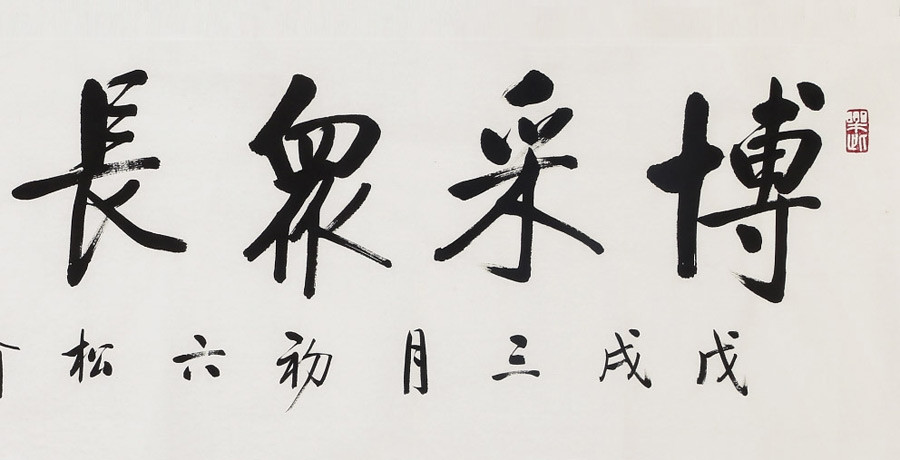 博采眾長
戊戌三月初六松